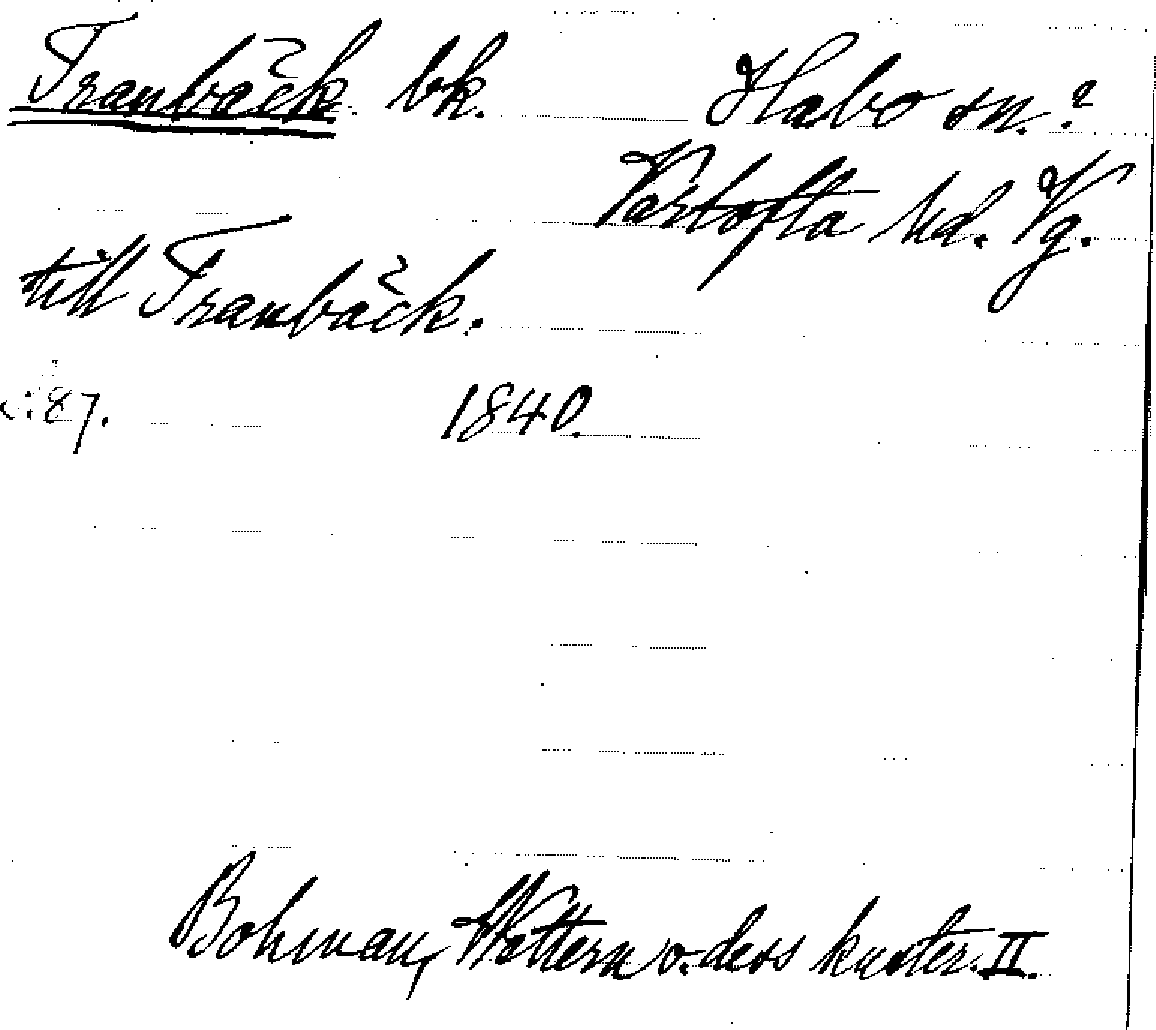 Tranbäck bk. Habo sn.?
Vartofta hd. Vg.
till Tranbäck.
:87. 1840.
Bohman, Wettern o. dess kuster. II.